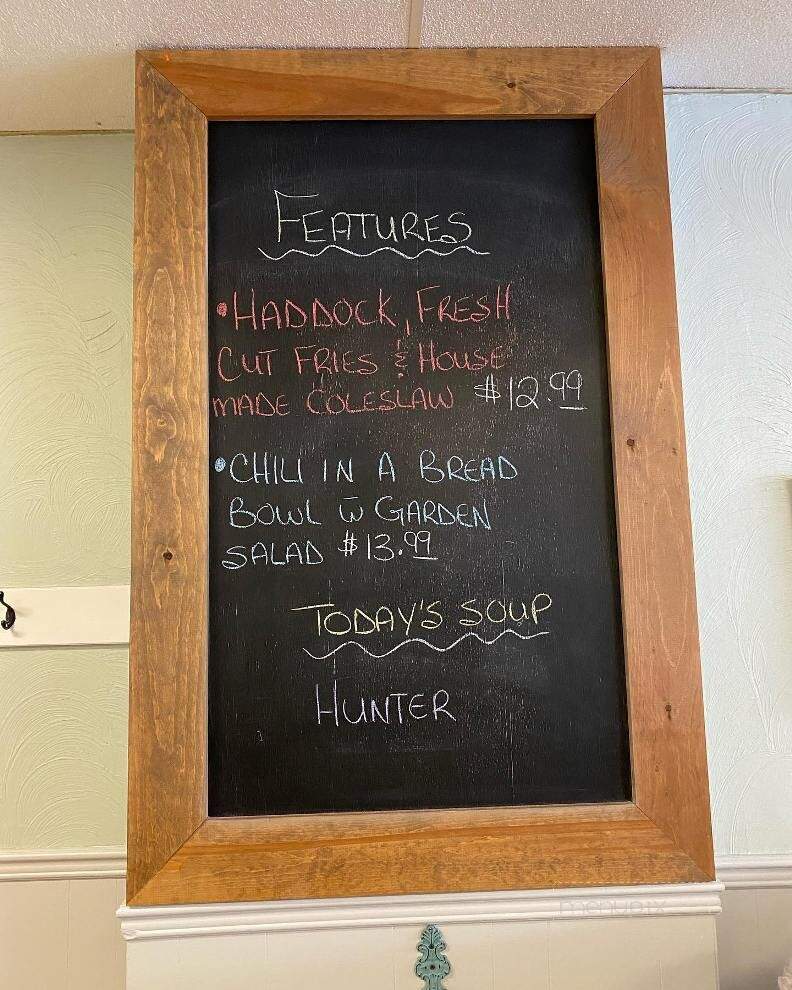 FEATURES
• HADDOCK, FRESH
CUT FRIES & HOUSE
MADE COLESLAW $12.99
• CHILI IN A BREAD
BOWL w̄ GARDEN
SALAD $13.99
TODAY'S SOUP
HUNTER
menupix